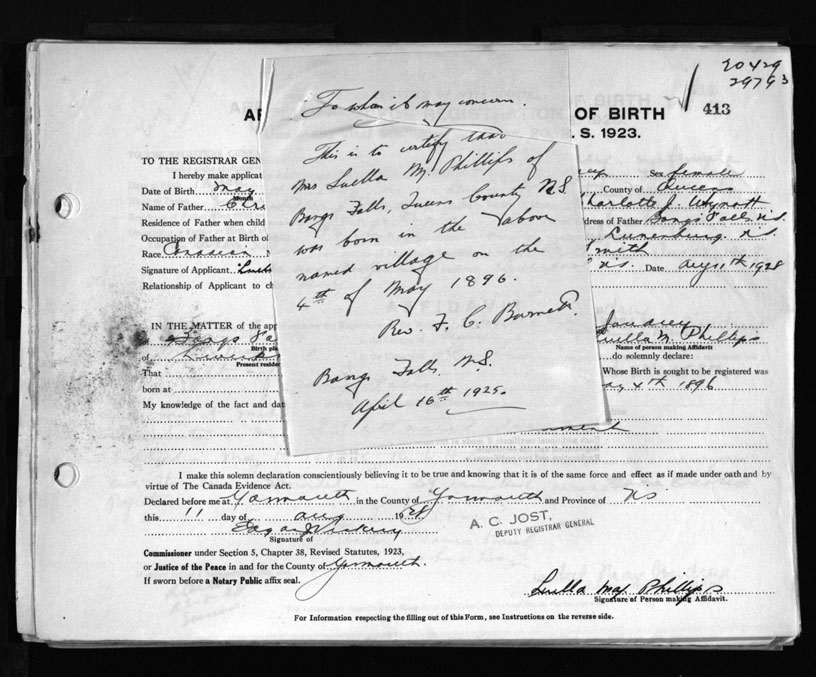 20429
29793
413
AP
OF BIRTH
. S. 1923.
TO THE REGISTRAR GEN
I hereby make applicat
Sex female
Date of Birth May
Month
County of Queens
Name of Father
Charlotte J. Wynott
Residence of Father when child
dress of Father Bangs Falls, N.S.
Occupation of Father at Birth of
Lunenburg, N.S.
Race Canadian N
Smith
Signature of Applicant Luella
N.S. Date Aug 11th 1928
Relationship of Applicant to ch
To whom it may concern.
This is to certify that
Mrs Luella M. Phillips of
Bangs Falls, Queens County N.S
was born in the above
named village on the
4th of May 1896.
Rev. F. C. Barnett.
Bangs Falls N.S.
April 16th 1925.
IN THE MATTER of the app
January
Luella M Phillips
Birth pla
Name of person making Affidavit
of
do solemnly declare:
Present residen
That
Whose Birth is sought to be registered was
born at
ay 4th 1896
My knowledge of the fact and dat
ment
I make this solemn declaration conscientiously believing it to be true and knowing that it is of the same force and effect as if made under oath and by
virtue of The Canada Evidence Act.
Declared before me at Yarmouth in the County of Yarmouth and Province of NS
this 11 day of Aug 1928
A. C. JOST,
DEPUTY REGISTRAR GENERAL
Signature of
Commissioner under Section 5, Chapter 38, Revised Statutes, 1923,
or Justice of the Peace in and for the County of Yarmouth.
If sworn before a Notary Public affix seal.
Luella May Phillips
Signature of Person making Affidavit.
For Information respecting the filling out of this Form, see Instructions on the reverse side.